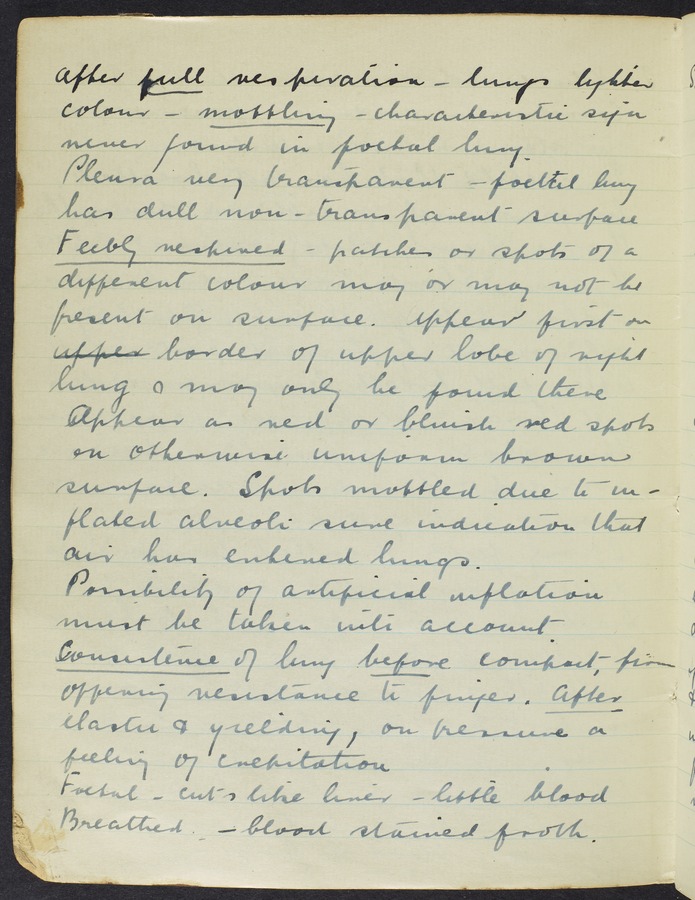 After full respiration - lungs lighter
colour - mottling - characteristic sign
never found in foetal lung.
Pleura very transparent - foetal lung
has dull non-transparent surface
Feebly respired - patches or spots of a
different colour may or may not be
present on surface. Appear first on
upper border of upper lobe of right
lung & may only be found there
Appear as red or bluish red spots
on otherwise uniform brown
surface. Spots mottled due to in-
flated alveoli sure indication that
air has entered lungs.
Possibility of artificial inflation
must be taken into account
Consistence of lung before compact, firm
offering resistance to finger. After
elastic & yielding, on pressure a
feeling of crepitation
Foetal - cuts like liver - little blood
Breathed - blood stained froth.